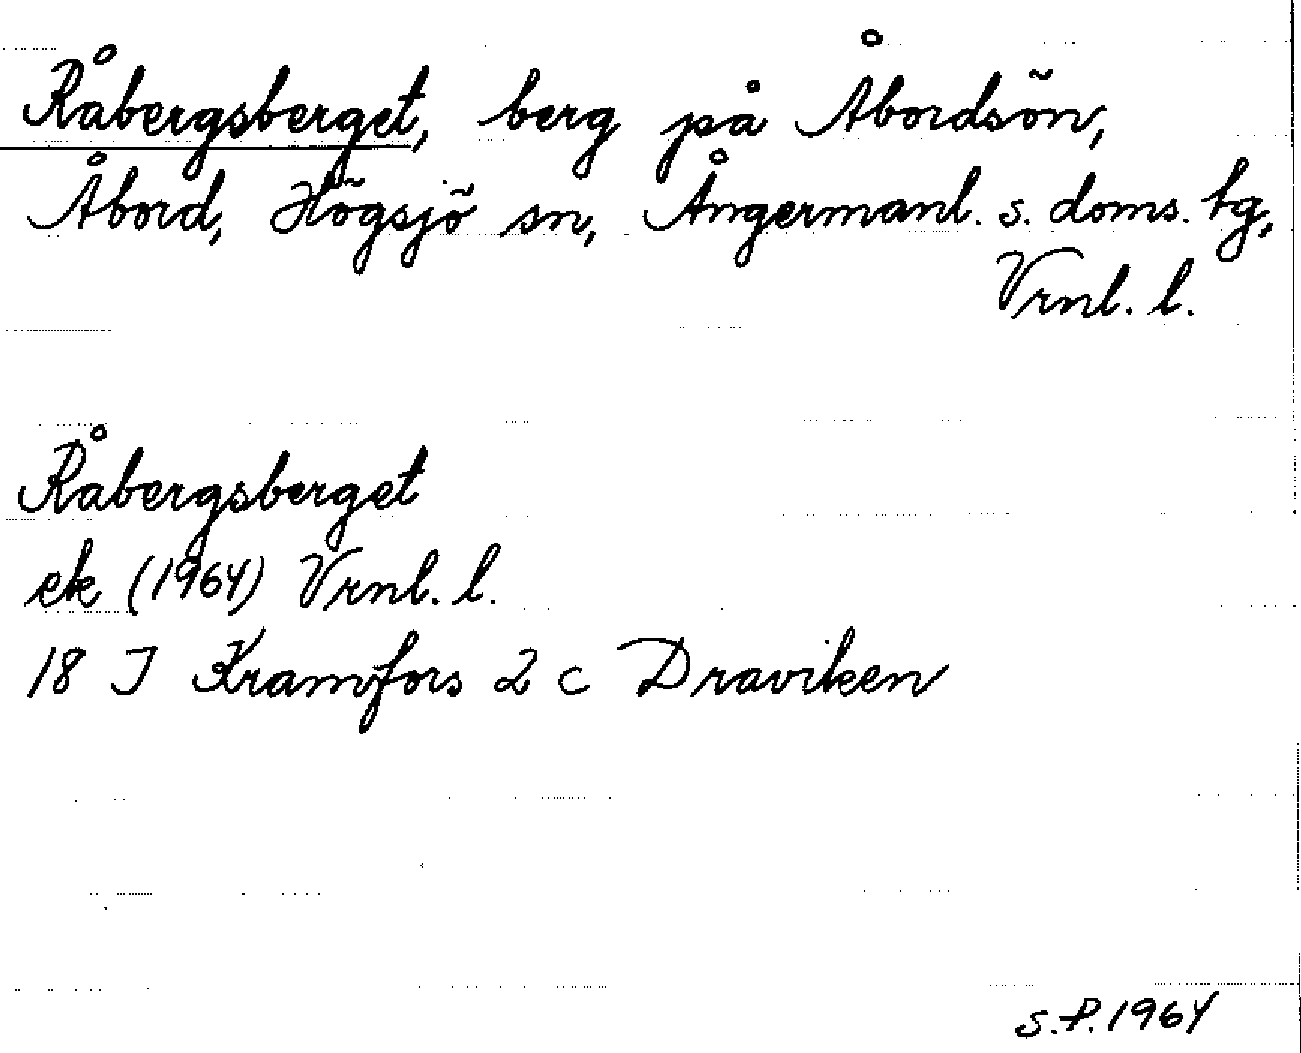 Råbergsberget, berg på Åbordsön,
Åbord, Högsjö sn, Ångermanl. s. doms. tg,
Vrnl. l.
Råbergsberget
ek (1964) Vrnl. l.
18 J Kramfors 2 c Draviken
S.P. 1964